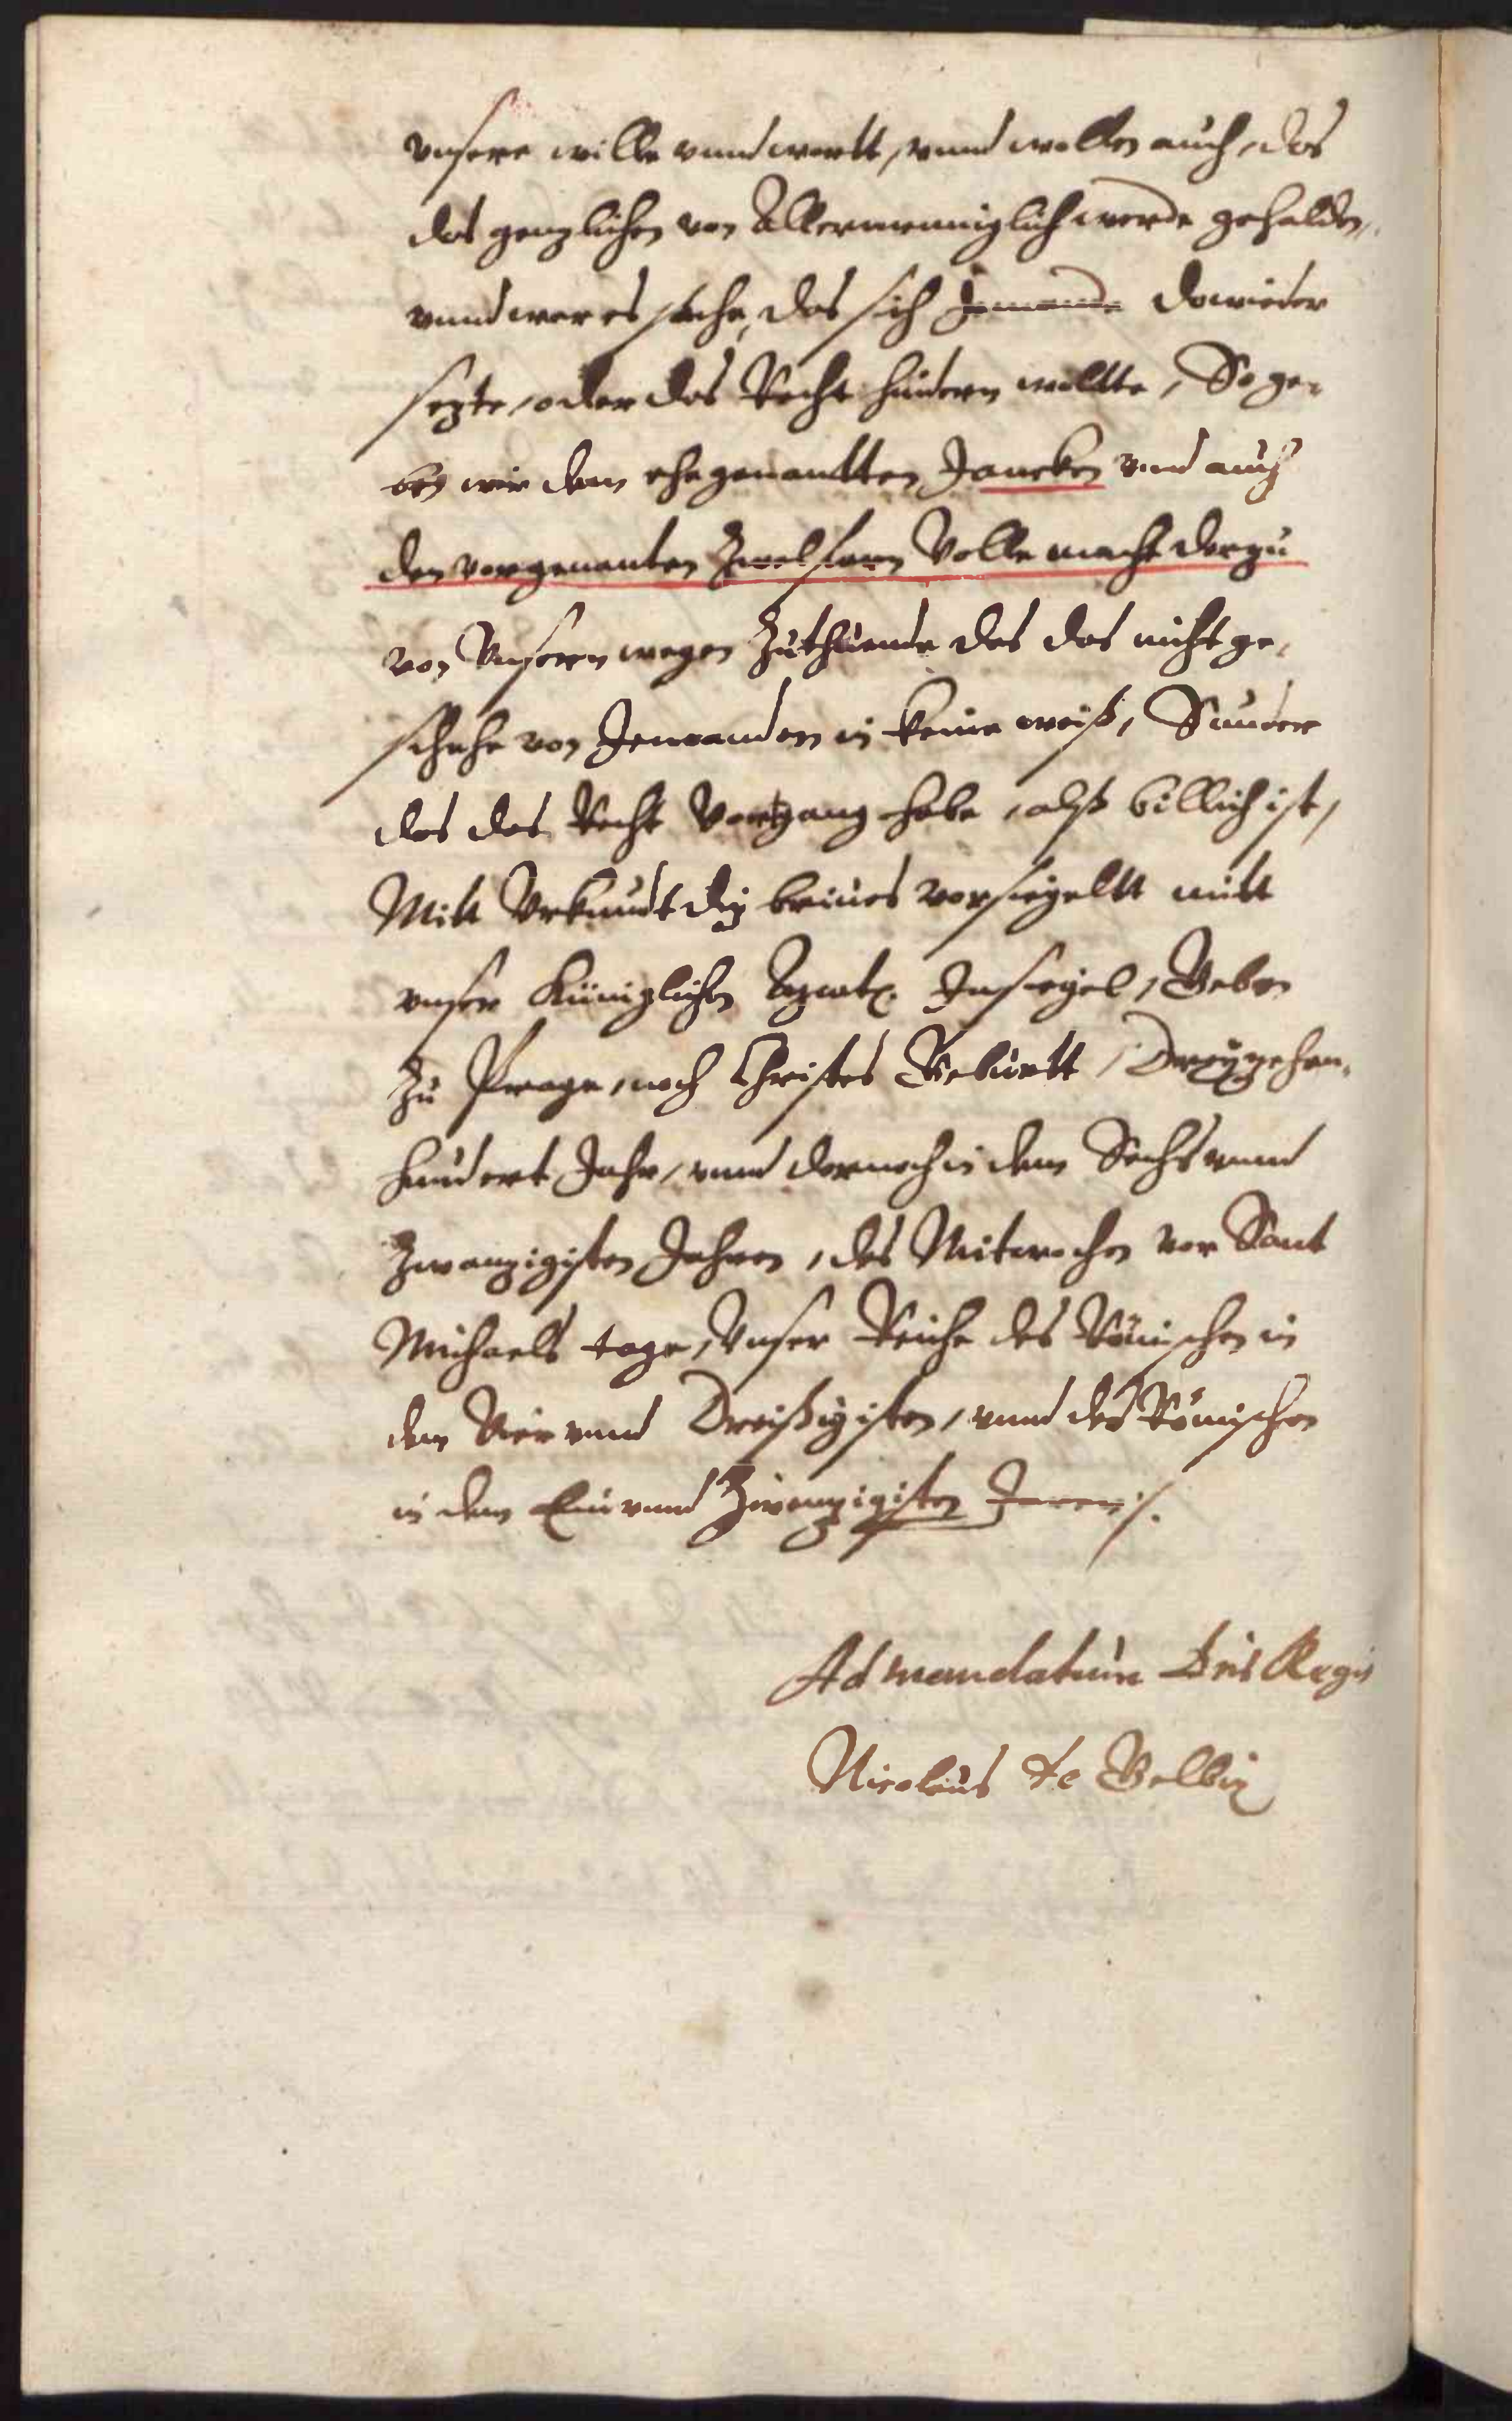 vnsere wille vnnd wortt, vnnd wollen auch, das
das genzlichen von Allermenniglich werde gehalden,
vnnd wer es sache, das sich Jemande dowieder
sezte, oder das Recht hindern wolltte, So ge-
ben wir dem ehegenantten Jancken vnd auch
den vorgenanten Zwelfern Volle macht derzu
von Vnserm wegen Zuthuende das das nicht ge-
schehe von Jemanden in keine weiß, Sunder
das das Recht Vortgang habe, alß billich ist,
Mitt Vrkundt diz brives vorsiegeltt mitt
vnser Küniglichen Insiegel, Geben
Zu Prage, noch Christes Geburtt, Dreyzehen-
hundert Jahr, vnnd dornoch in dem Sechs vnnd
Zwanzigisten Jahren, des Mitwochen vor Sant
Michaels tage, Vnser Reiche des Römischen in
dem Vier vnnd Dreißigisten, vnnd des Römischen
in dem Ein vnnd Zwenzigisten Jaren /.
Ad mandatum Dnis Regis
Nicolaus de